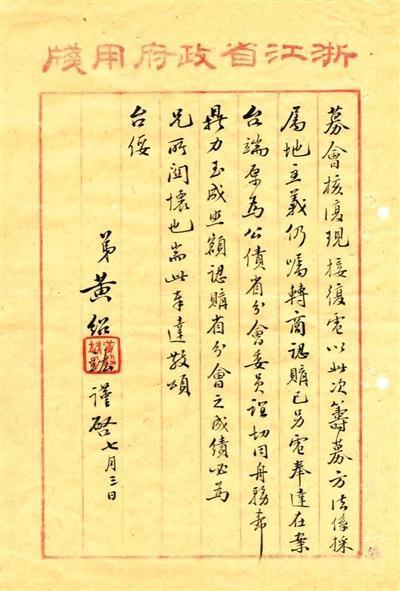 浙江省政府用牋
募會核復現接復電以此次籌募方法係採
屬地主義仍囑轉商認購已另電奉達在案
台端原為公債省分會委員誼切同舟務希
鼎力玉成照額認購省分會之成績必為
兄所關懷也耑此奉達敬頌
台綏
弟黃紹竑謹啓七月三日